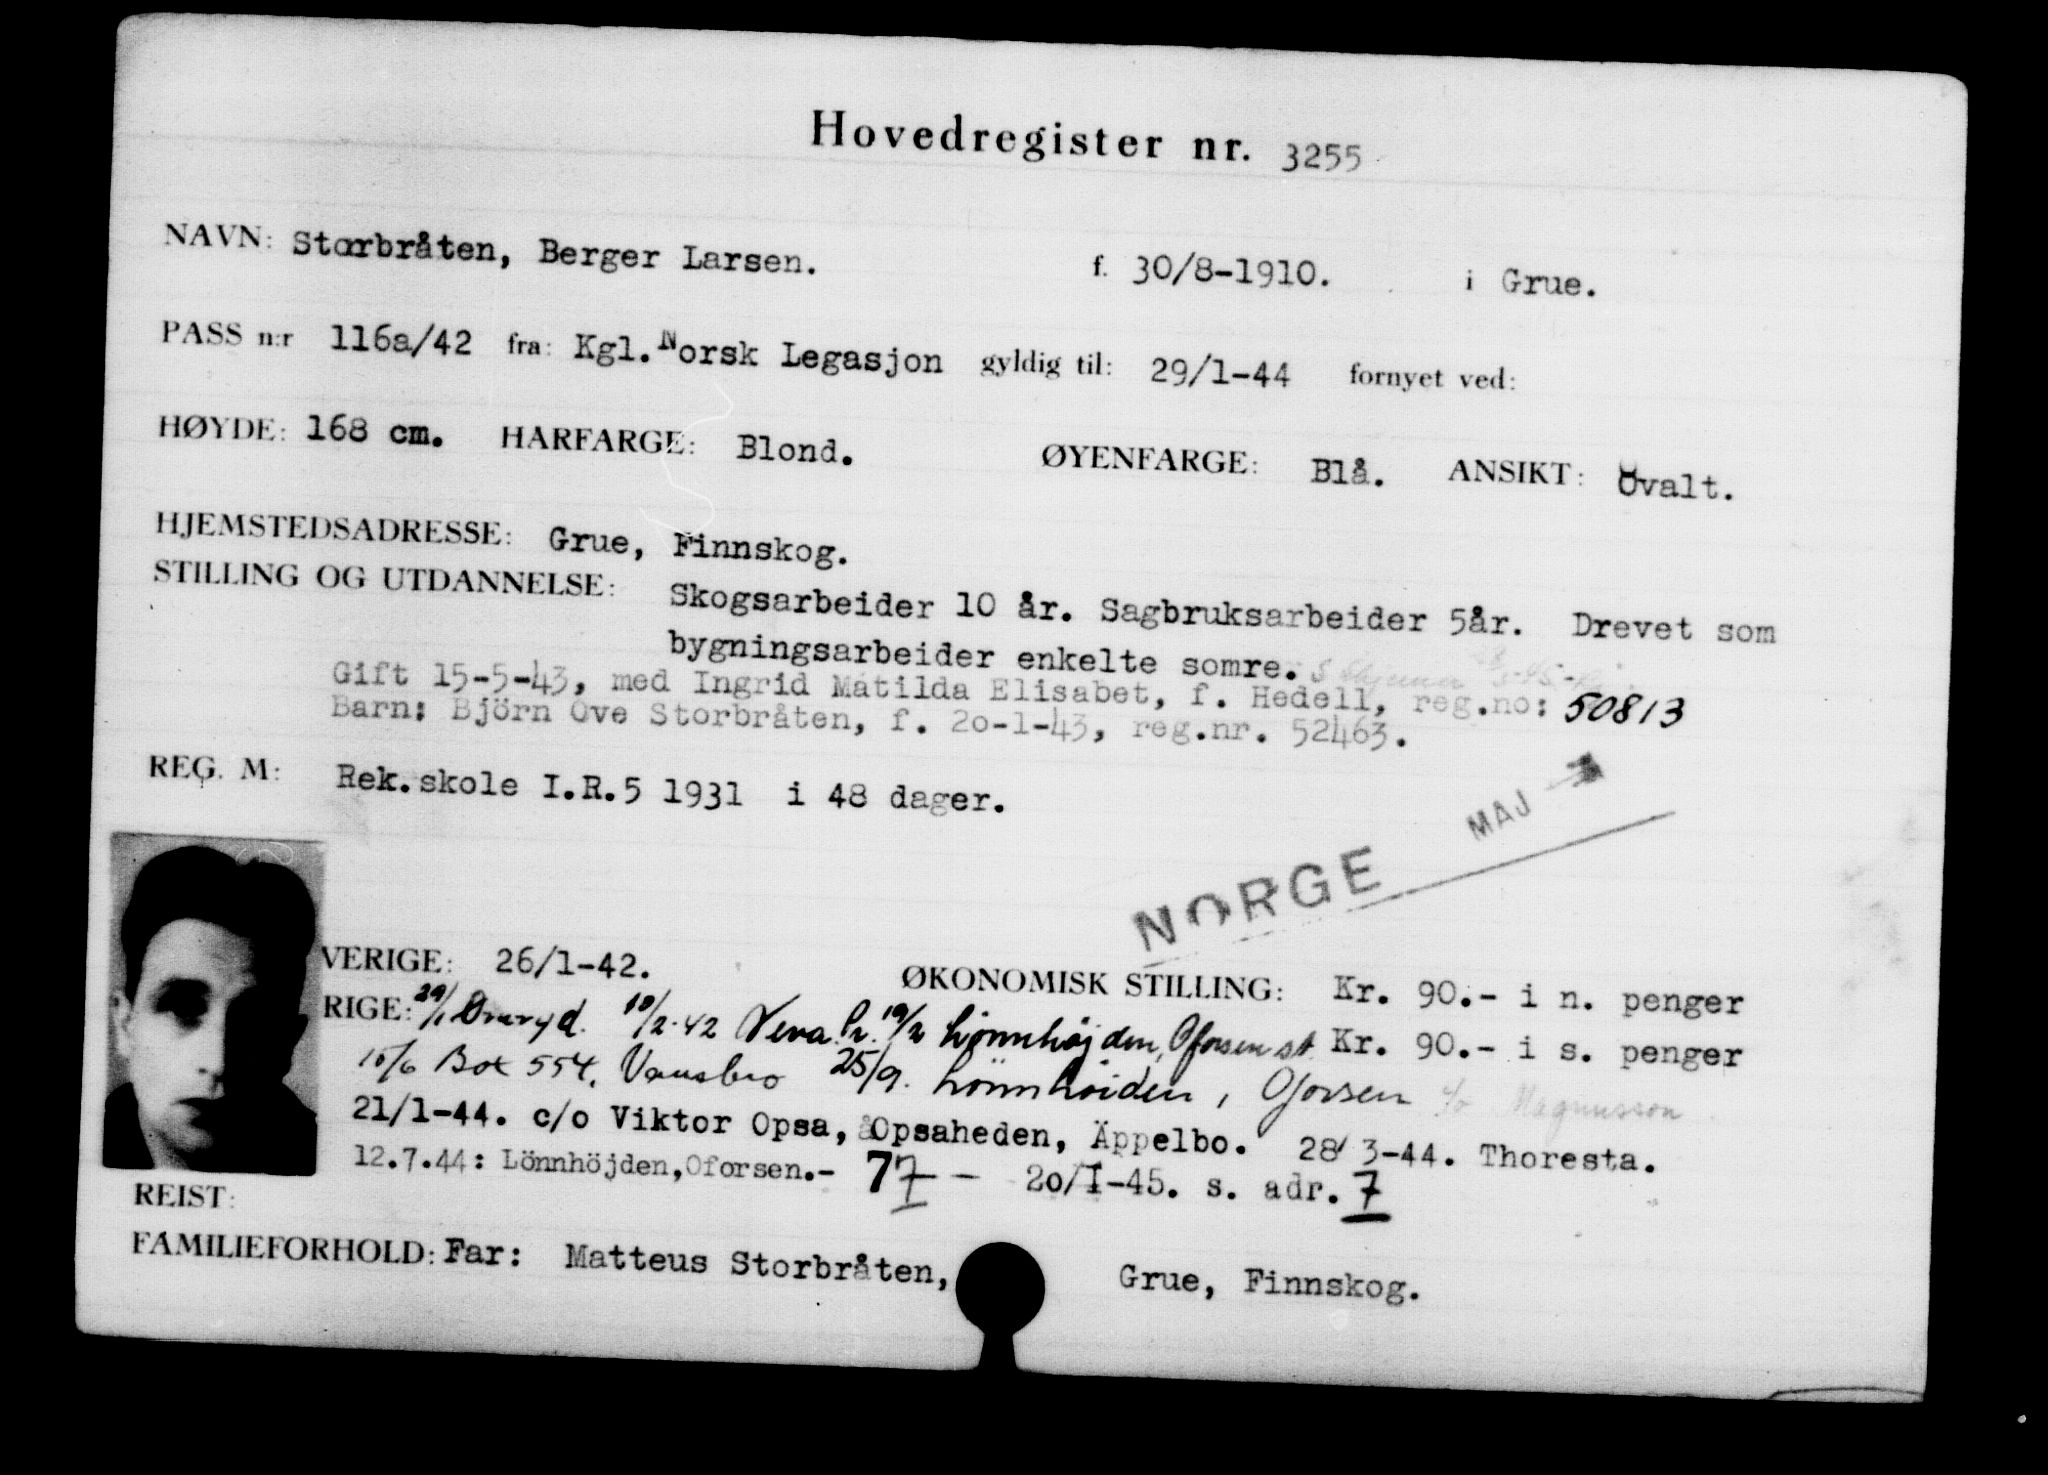 Hovedregister nr. 3255
NAVN: Storbråten, Berger Larsen. f. 30/8-1910. i Grue.
PASS n:r 116a/42 fra: Kgl.Norsk Legasjon gyldig til: 29/1-44 fornyet ved:
HØYDE: 168 cm. HARFARGE: Blond. ØYENFARGE: Blå. ANSIKT: Ovalt.
HJEMSTEDSADRESSE: Grue, Finnskog.
STILLING OG UTDANNELSE: Skogsarbeider 10 år. Sagbruksarbeider 5år. Drevet som
bygningsarbeider enkelte somre.
Gift 15-5-43, med Ingrid Matilda Elisabet, f. Hedell, reg.no: 50813
Barn: Björn Ove Storbråten, f. 20-1-43, reg.nr. 52463.
REG. M: Rek.skole I.R.5 1931 i 48 dager.
NORGE MAJ
VERIGE: 26/1-42. ØKONOMISK STILLING: Kr. 90.- i n. penger
RIGE: 29/1 10/2-42 19/2 Lönnhöjden, Oforsen st Kr. 90.- i s. penger
10/6 Box 554, Vansbro 25/9. Lönnhöiden, Oforsen c/o Magnusson
21/1-44. c/o Viktor Opsa, Opsaheden, Äppelbo. 28/3-44. Thoresta.
12.7.44: Lönnhöjden,Oforsen.- 77 - 20/I-45. s. adr. 7
REIST:
FAMILIEFORHOLD: Far: Matteus Storbråten, Grue, Finnskog.